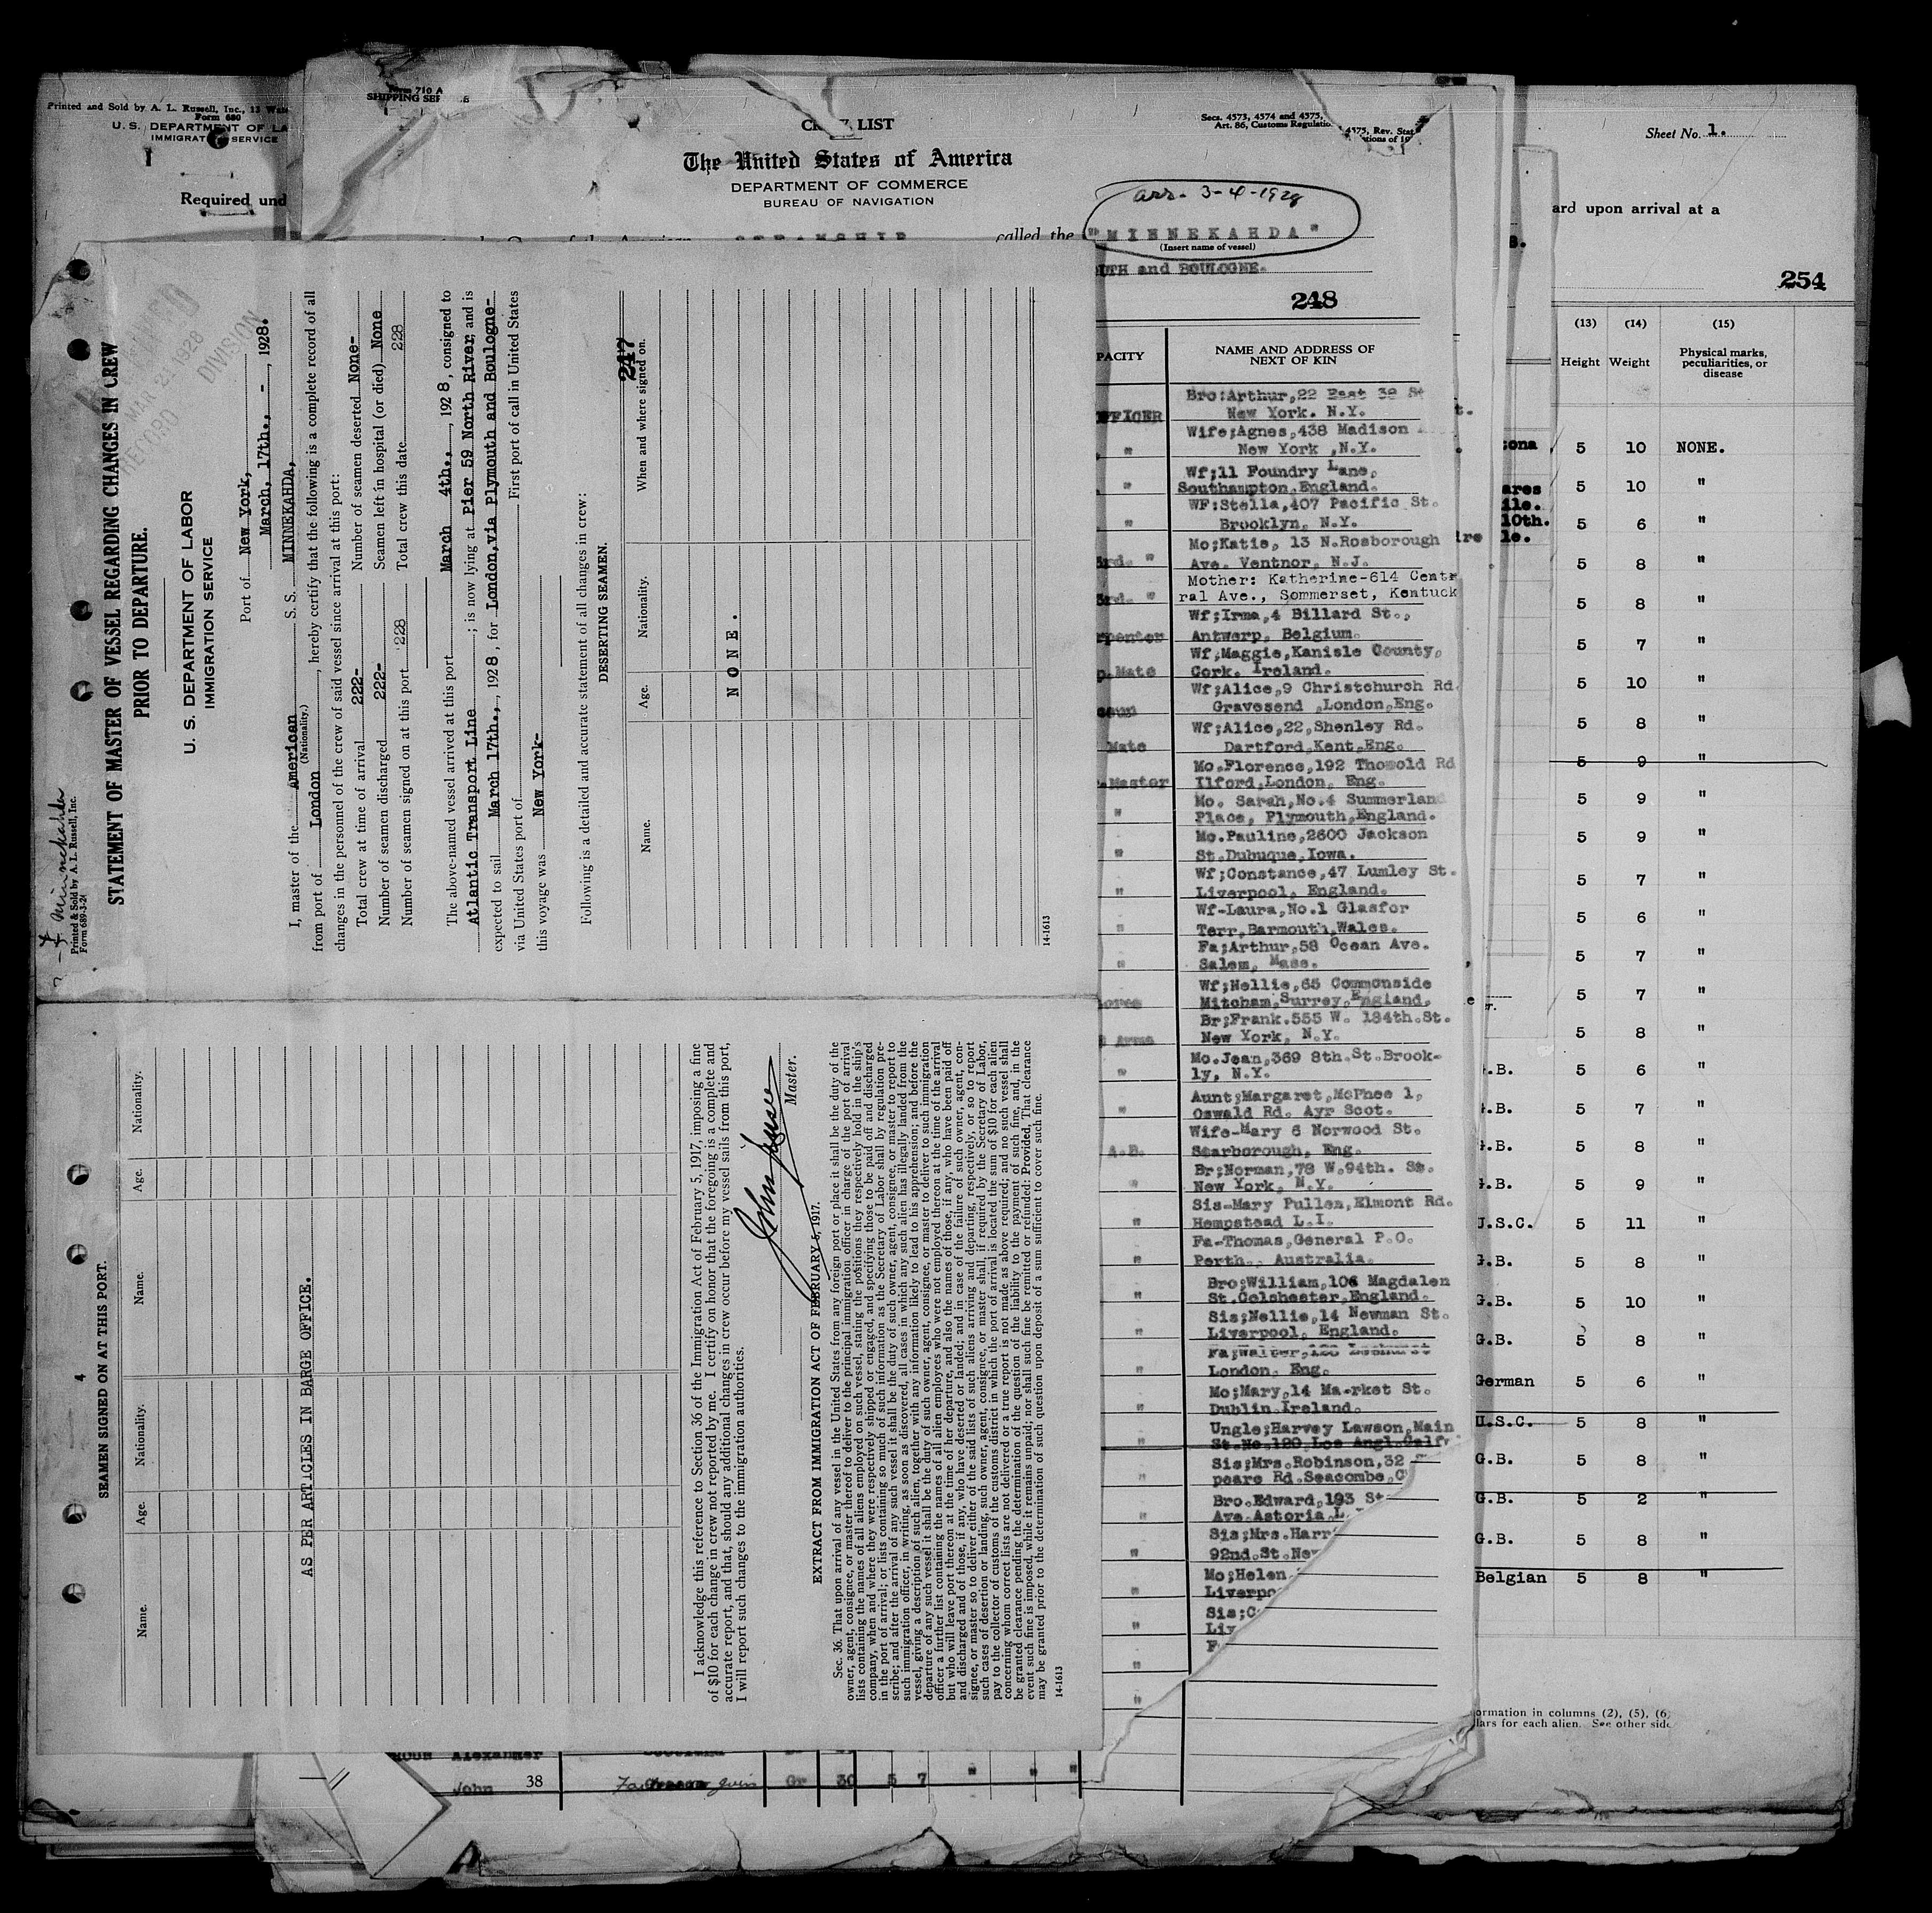 Printed and Sold by A. L. Russell, Inc., 13
Form 680
U. S. DEPARTMENT OF LA
IMMIGRAT SERVICE
Required und
Form 710 A
SHIPPING SER
LIST
The United States of America
DEPARTMENT OF COMMERCE
BUREAU OF NAVIGATION
Secs. 4573, 4574 and 4575,
Art. 86, Customs Regulatio
4575, Rev. Stat
tions of 19
arr. 3-4-1928
called the "MINNEKAHDA"
(Insert name of vessel)
UTH and BOULOGNE.
248
PACITY
NAME AND ADDRESS OF
NEXT OF KIN
OFFICER
Bro:Arthur,22 East 38 St
New York. N.Y.
Wife;Agnes,438 Madison
" New York ,N.Y.
Wf;11 Foundry Lane,
" Southampton,England.
WF:Stella,407 Pacific St.
" Brooklyn, N.Y.
Mo;Katie, 13 N.Rosborough
3rd. " Ave. Ventnor, N.J.
Mother: Katherine-614 Centr
3rd. " ral Ave., Sommerset, Kentuck
Wf;Irma,4 Billard St.,
rpenter Antwerp, Belgium.
Wf;Maggie,Kanisle County,
p.Mate Cork. Ireland.
Wf;Alice,9 Christchurch Rd.
Gravesend ,London,Eng.
Wf;Alice,22,Shenley Rd.
Mate Dartford,Kent,Eng.
Mo.Florence,192 Thomold Rd
.Master Ilford,London, Eng.
Mo. Sarah,No.4 Summerland
" Place, Plymouth,England.
Mo.Pauline,2600 Jackson
" St.Dubuque,Iowa.
Wf;Constance,47 Lumley St.
" Liverpool, England.
Wf-Laura,No.1 Glasfor
" Terr,Barmouth,Wales.
Fa;Arthur,58 Ocean Ave.
" Salem, Mass.
Wf;Nellie,65 Commonside
Mitcham,Surrey,England,
Br;Frank.555 W. 184th.St.
Arms New York, N.Y.
Mo.Jean,369 8th.St.Brook-
" ly, N.Y.
Aunt;Margaret,McPhee 1,
" Oswald Rd. Ayr Scot.
Wife-Mary 6 Norwood St.
A.B. Scarborough, Eng.
Br;Norman,78 W.94th. St.
" New York, N.Y.
Sis-Mary Pullen,Elmont Rd.
" Hempstead L.I.
Fa-Thomas,General P.O.
" Perth., Australia.
Bro;William,106 Magdalen
" St.Colchester,England.
Sis;Nellie,14 Newman St.
" Liverpool, England.
Fa;Walter,
" London, Eng.
Mo;Mary,14 Ma-rket St.
" Dublin.Ireland.
Ungle;Harvey Lawson,Main
" St.No.120 Los Angl.Calf
Sis;Mrs.Robinson,32
" peare Rd.Seacombe,C
Bro.Edward,193 St
" Ave.Astoria,L
Sis;Mrs.Harr
" 92nd.St.Ne
Mo;Helen
" Liverpo
Sis;C
" Liv
F
"
"
"
Sheet No. 1.
ard upon arrival at a
254
(13) (14) (15)
Height Weight Physical marks,
peculiarities, or
disease
5 10 NONE.
5 10 "
5 6 "
5 8 "
5 8 "
5 7 "
5 10 "
5 8 "
5 9 "
5 9 "
5 9 "
5 7 "
5 6 "
5 7 "
5 7 "
5 8 "
.B. 5 6 "
.B. 5 7 "
.B. 5 8 "
G.B. 5 9 "
U.S.C. 5 11 "
G.B. 5 8 "
G.B. 5 10 "
G.B. 5 8 "
German 5 6 "
U.S.C. 5 8 "
G.B. 5 8 "
G.B. 5 2 "
G.B. 5 8 "
Belgian 5 8 "
ormation in columns (2), (5), (6
llars for each alien. See other side
Minnekahda
Printed & Sold by A. L. Russell, Inc.
Form 689-3-2
STATEMENT OF MASTER OF VESSEL REGARDING CHANGES IN CREW
PRIOR TO DEPARTURE.
RECEIVED
MAR 29 1928
RECORD DIVISION
U. S. DEPARTMENT OF LABOR
IMMIGRATION SERVICE
Port of New York,
March, 17th., - , 1928.
I, master of the American S. S. MINNEKAHDA,
(Nationality.)
from port of London, hereby certify that the following is a complete record of all
changes in the personnel of the crew of said vessel since arrival at this port:
Total crew at time of arrival 222- Number of seamen deserted None-
Number of seamen discharged 222- Seamen left in hospital (or died) None
Number of seamen signed on at this port 228 Total crew this date 228
The above-named vessel arrived at this port March 4th., , 1928, consigned to
Atlantic Transport Line ; is now lying at Pier 59 North River, and is
expected to sail March 17th., , 1928, for London,via Plymouth and Boulogne-
via United States port of First port of call in United States
this voyage was New York-
Following is a detailed and accurate statement of all changes in crew:
DESERTING SEAMEN.
247
Name. Age. Nationality. When and where signed on.
NONE.
14-1613
4
SEAMEN SIGNED ON AT THIS PORT.
Name. Age. Nationality. Name. Age. Nationality.
AS PER ARTICLES IN BARGE OFFICE.
I acknowledge this reference to Section 36 of the Immigration Act of February 5, 1917, imposing a fine
of $10 for each change in crew not reported by me. I certify on honor that the foregoing is a complete and
accurate report, and that, should any additional changes in crew occur before my vessel sails from this port,
I will report such changes to the immigration authorities.
John Jensen
Master.
EXTRACT FROM IMMIGRATION ACT OF FEBRUARY 5, 1917.
Sec. 36. That upon arrival of any vessel in the United States from any foreign port or place it shall be the duty of the
owner, agent, consignee, or master thereof to deliver to the principal immigration officer in charge of the port of arrival
lists containing the names of all aliens employed on such vessel, stating the positions they respectively hold in the ship's
company, when and where they were respectively shipped or engaged, and specifying those to be paid off and discharged
in the port of arrival; or lists containing so much of such information as the Secretary of Labor shall by regulation pre-
scribe; and after the arrival of any such vessel it shall be the duty of such owner, agent, consignee, or master to report to
such immigration officer, in writing, as soon as discovered, all cases in which any such alien has illegally landed from the
vessel, giving a description of such alien, together with any information likely to lead to his apprehension; and before the
departure of any such vessel it shall be the duty of such owner, agent, consignee, or master to deliver to such immigration
officer a further list containing the names of all alien employees who were not employed thereon at the time of the arrival
but who will leave port thereon at the time of her departure, and also the names of those, if any, who have been paid off
and discharged and of those, if any, who have deserted or landed; and in case of the failure of such owner, agent, con-
signee, or master so to deliver either of the said lists of such aliens arriving and departing, respectively, or so to report
such cases of desertion or landing, such owner, agent, consignee, or master shall, if required by the Secretary of Labor,
pay to the collector of customs of the customs district in which the port of arrival is located the sum of $10 for each alien
concerning whom correct lists are not delivered or a true report is not made as above required; and no such vessel shall
be granted clearance pending the determination of the question of the liability to the payment of such fine, and, in the
event such fine is imposed, while it remains unpaid; nor shall such fine be remitted or refunded: Provided, That clearance
may be granted prior to the determination of such question upon deposit of a sum sufficient to cover such fine.
14-1613
Alexander
John 38 Gr 30 5 7 " " "